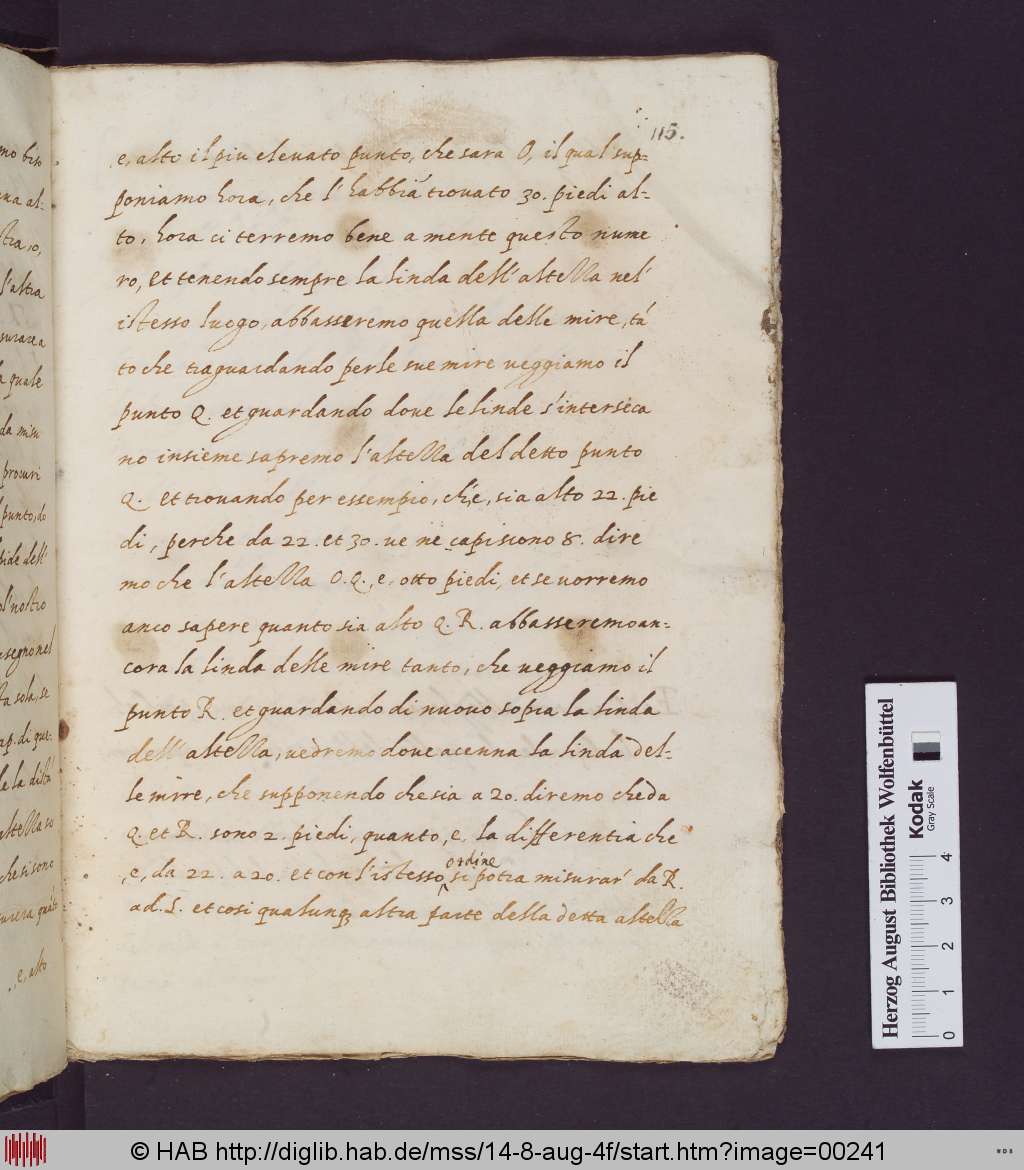 115.
,e, alto il piu elevato punto, che sara O, il qual sup=
poniamo hora, che l'habbia trovato 30. piedi al-
to, hora ci terremo bene a mente questo nume
ro, et tenendo sempre la linda dell'altella nel'
istesso luogo, abbasseremo quella delle mire, tá
to che traguardando per le sue mire veggiamo il
punto Q. et guardando dove le linde s'interseca
no insieme sapremo l'altella del detto punto
Q. et trovando per essempio, ch'e, sia alto 22. pie
di, perche da 22. et 30. ve ne capiscono 8. dire
mo che l'altella O.Q.,e, otto piedi, et se vorremo
anco sapere quanto sia alto Q.R. abbasseremo an=
cora la linda delle mire tanto, che veggiamo il
punto R. et guardando di nuovo sopra la linda
dell'altella, vedremo dove acenna la linda del-
le mire, che supponendo che sia a 20. diremo che da
Q. et R. sono 2. piedi, quanto, e, la differentia che
,e, da 22. a 20. et con l'istesso ordine si potra misurar' da R.
ad. S. et cosi qualunq; altra parte della detta altella
mo biso
una al-
l'altra
surare a
a quale
da misu
procuri
punto, do
pide dell'
ol'nostro
segno nel
ta sola, se
ap. di que-
le la distá
altella so
che si sono
,e, alto
Herzog August Bibliothek Wolfenbüttel
Kodak
Gray Scale
0 1 2 3 4
© HAB http://diglib.hab.de/mss/14-8-aug-4f/start.htm?image=00241